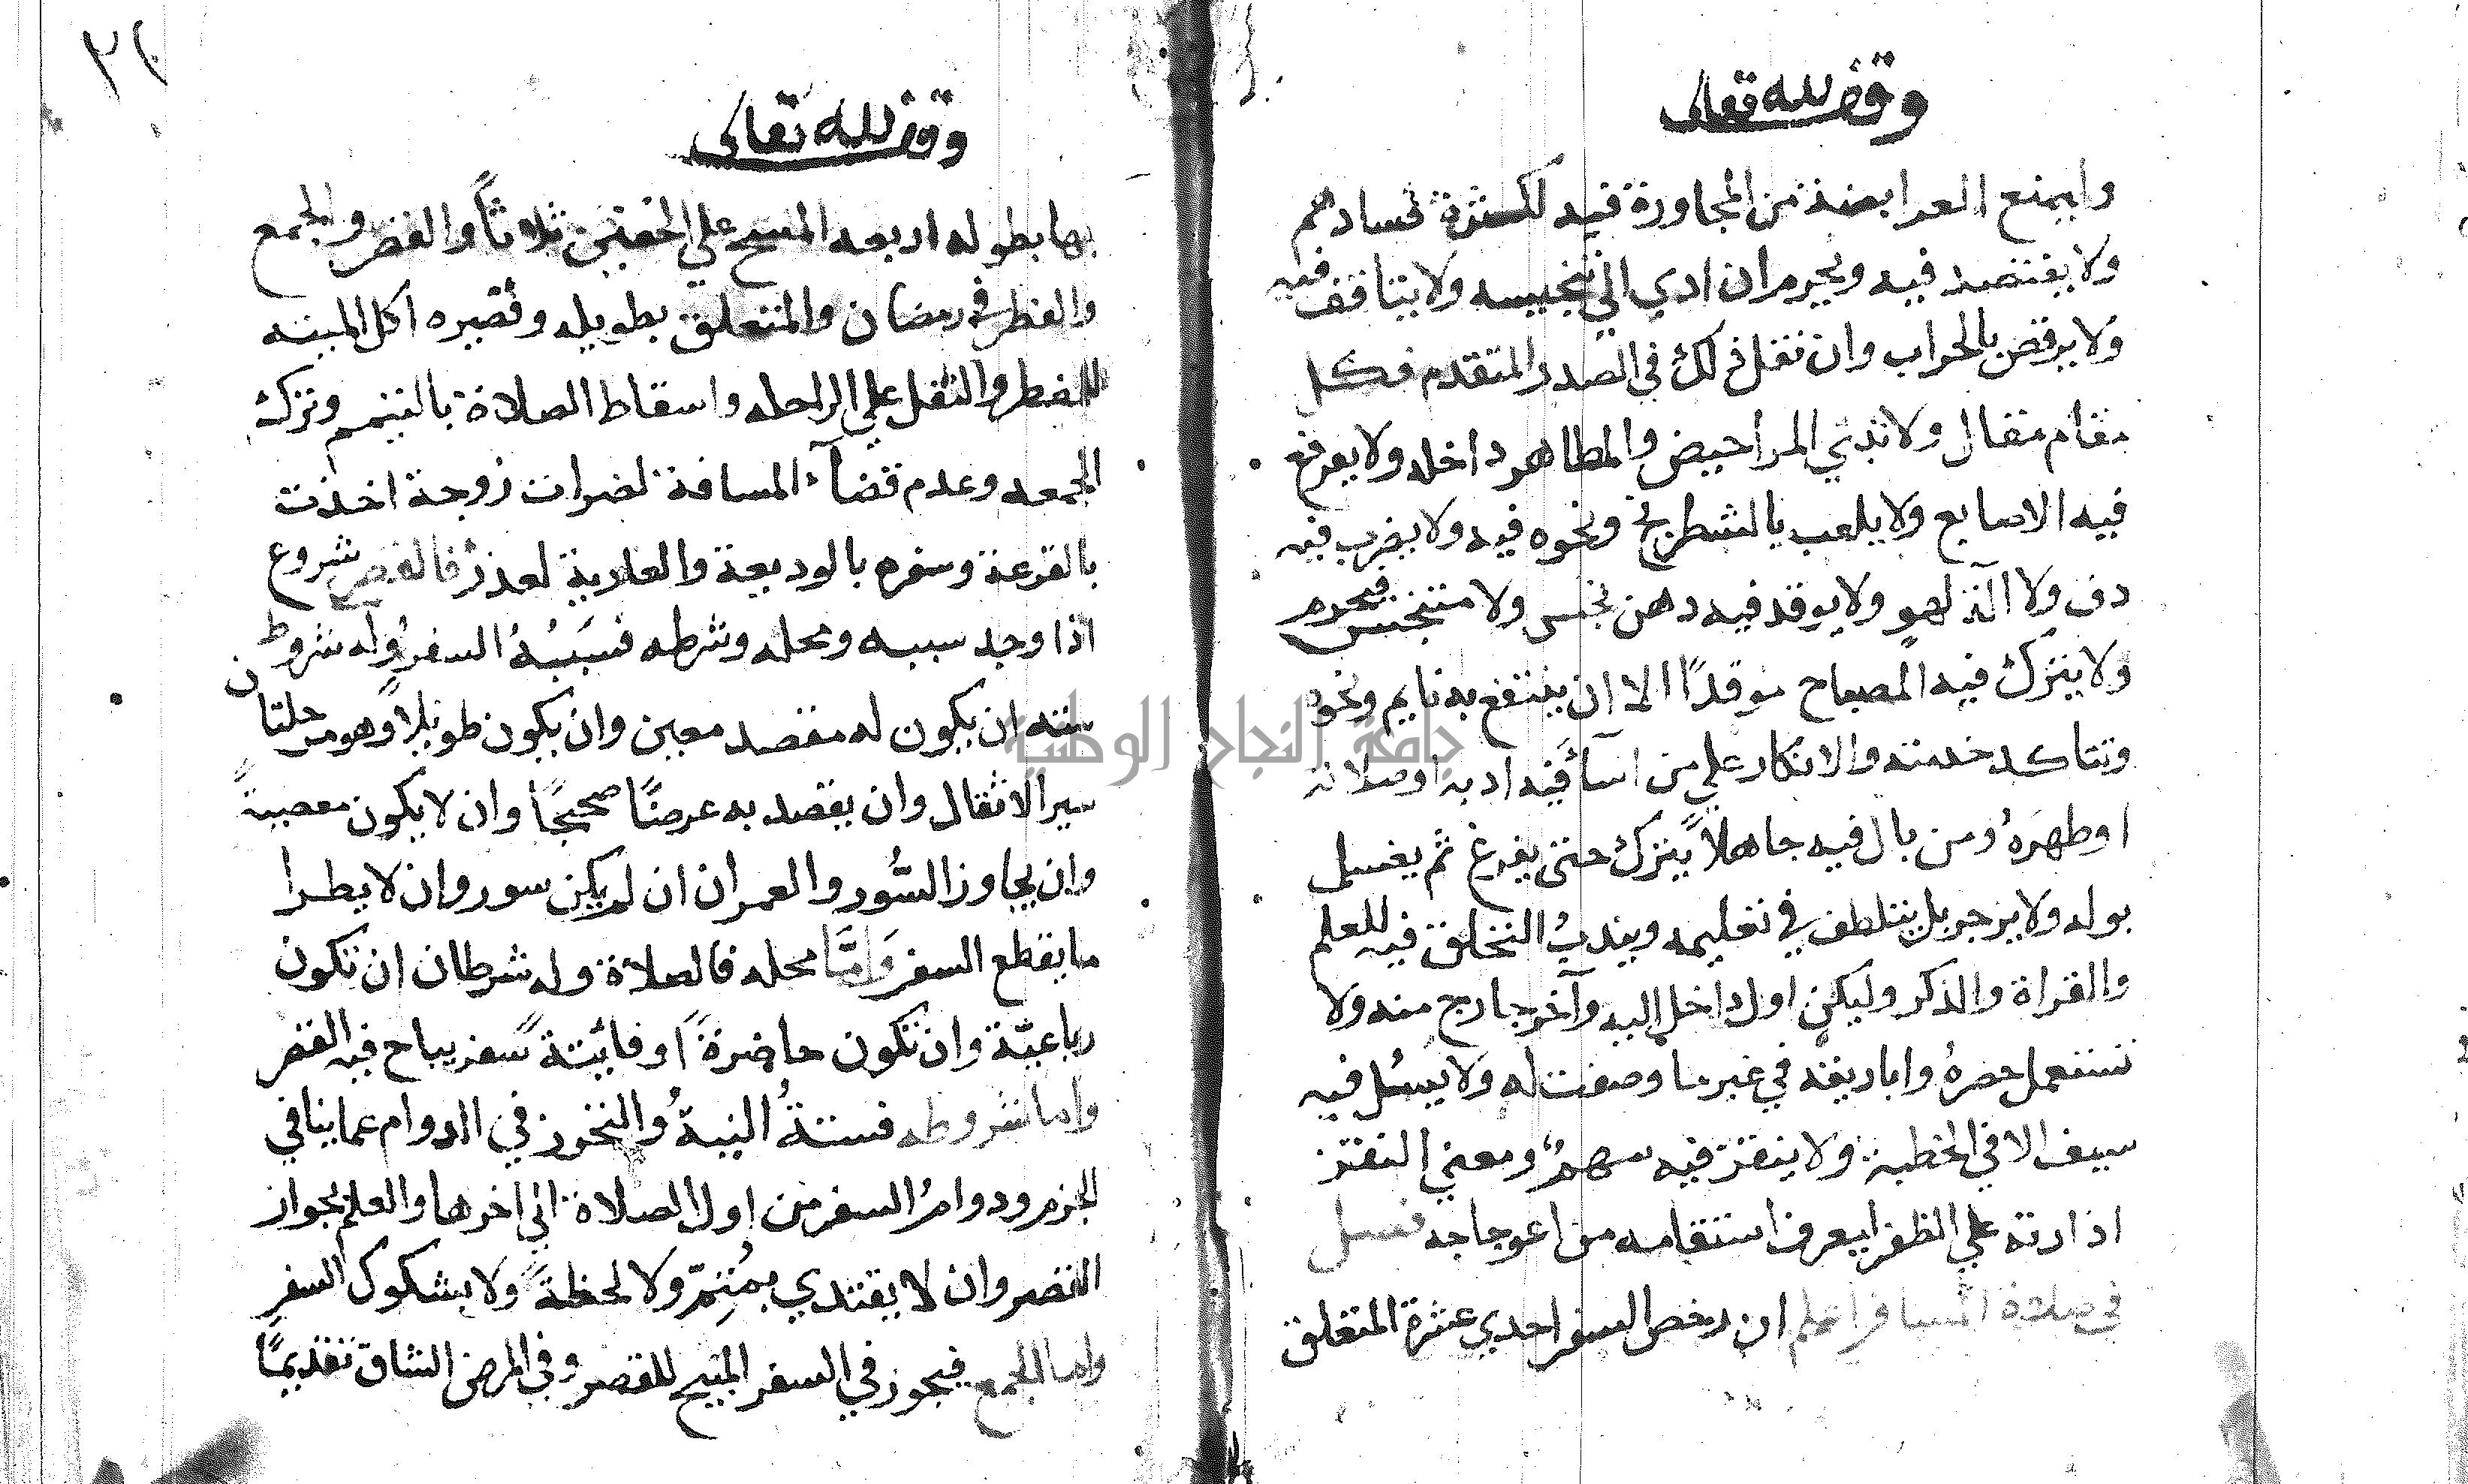 وقف لله تعالى
وليمنع العرابضة من المجاورة فيه لكثرة فسادهم
ولا يفتصد فيه ويحرم ان ادي الي تنجيسه ولا يتناقف فيه
ولا يرقص بالحراب وان نقل ذلك في الصدر المتقدم فكل
مقام مقال ولا تبني المراحيض والمطاهر داخله ولا يفرقع
فيه الاصابع ولا يلعب بالشطرنج ونحوه فيه ولا يضرب فيه
دف ولا آلة لهو ولا يوقد فيه دهن نجس ولا متنجس فيحرم
ولا يترك فيه المصباح موقدًا الا ان ينتفع به نايم ونحوه
وتتاكد خدمته والانكار علي من اسآ فيه ادبه او صلاته
او طهره ومن بال فيه جاهلاً يترك حتى يفرغ ثم يغسل
بوله ولا يزجر بل يتلطف في تعليمه ويندب التخلق فيه للعلم
والقراة والذكر وليكن اول داخل اليه وآخر خارج منه ولا
تستعمل حصره واباريقه في غير ما وضعت له ولا يسل فيه
سيف الا في الخطبة ولا ينقز فيه سهم ومعني النقز
ادارته علي الظفر ليعرف استقامه من اعوجاجه فصل
في صلاة المسافر اعلم ان رخص السفر احدي عشرة المتعلق
٢١
وقف لله تعالى
بها بطوله اربعه المسح علي الخفين ثلاثاً والقصر والجمع
والفطر في رمضان والمتعلق بطويله وقصيره اكل الميته
للمضطر والتنفل علي الراحله واسقاط الصلاة بالتيمم وترك
الجمعه وعدم قضآء المسافة لضرات زوجة اخذت
بالقرعة وسفره بالوديعة والعارية لعذر فالقصر مشروع
اذا وجد سببه ومحله وشرطه فسببه السفر وله شروط
سته ان يكون له مقصد معين وان يكون طويلاً وهو مرحلتان
سير الاثقال وان يقصد به عرضًا صحيحًا وان لا يكون معصيةً
وان يجاوز السُّور والعمران ان لم يكن سور وان لا يطرا
ما يقطع السفر وَامَّا محله فالصلاة وله شرطان ان تكون
رباعيّة وان تكون حاضرةً او فائتة سفر يباح فيه القصر
واما شروطه فستةُ النيةُ والتحرز في الدوام عما ينافي
الجزم ودوام السفر من اول الصلاة الي اخرها والعلم بجواز
القصر وان لا يقتدي بمُتِمّ ولا لحظةً ولا بمشكوك السفر
واما الجمع فيجوز في السفر المبيح للقصر وفي المرض الشاق تقديمًا
جامعة النجاح الوطنية